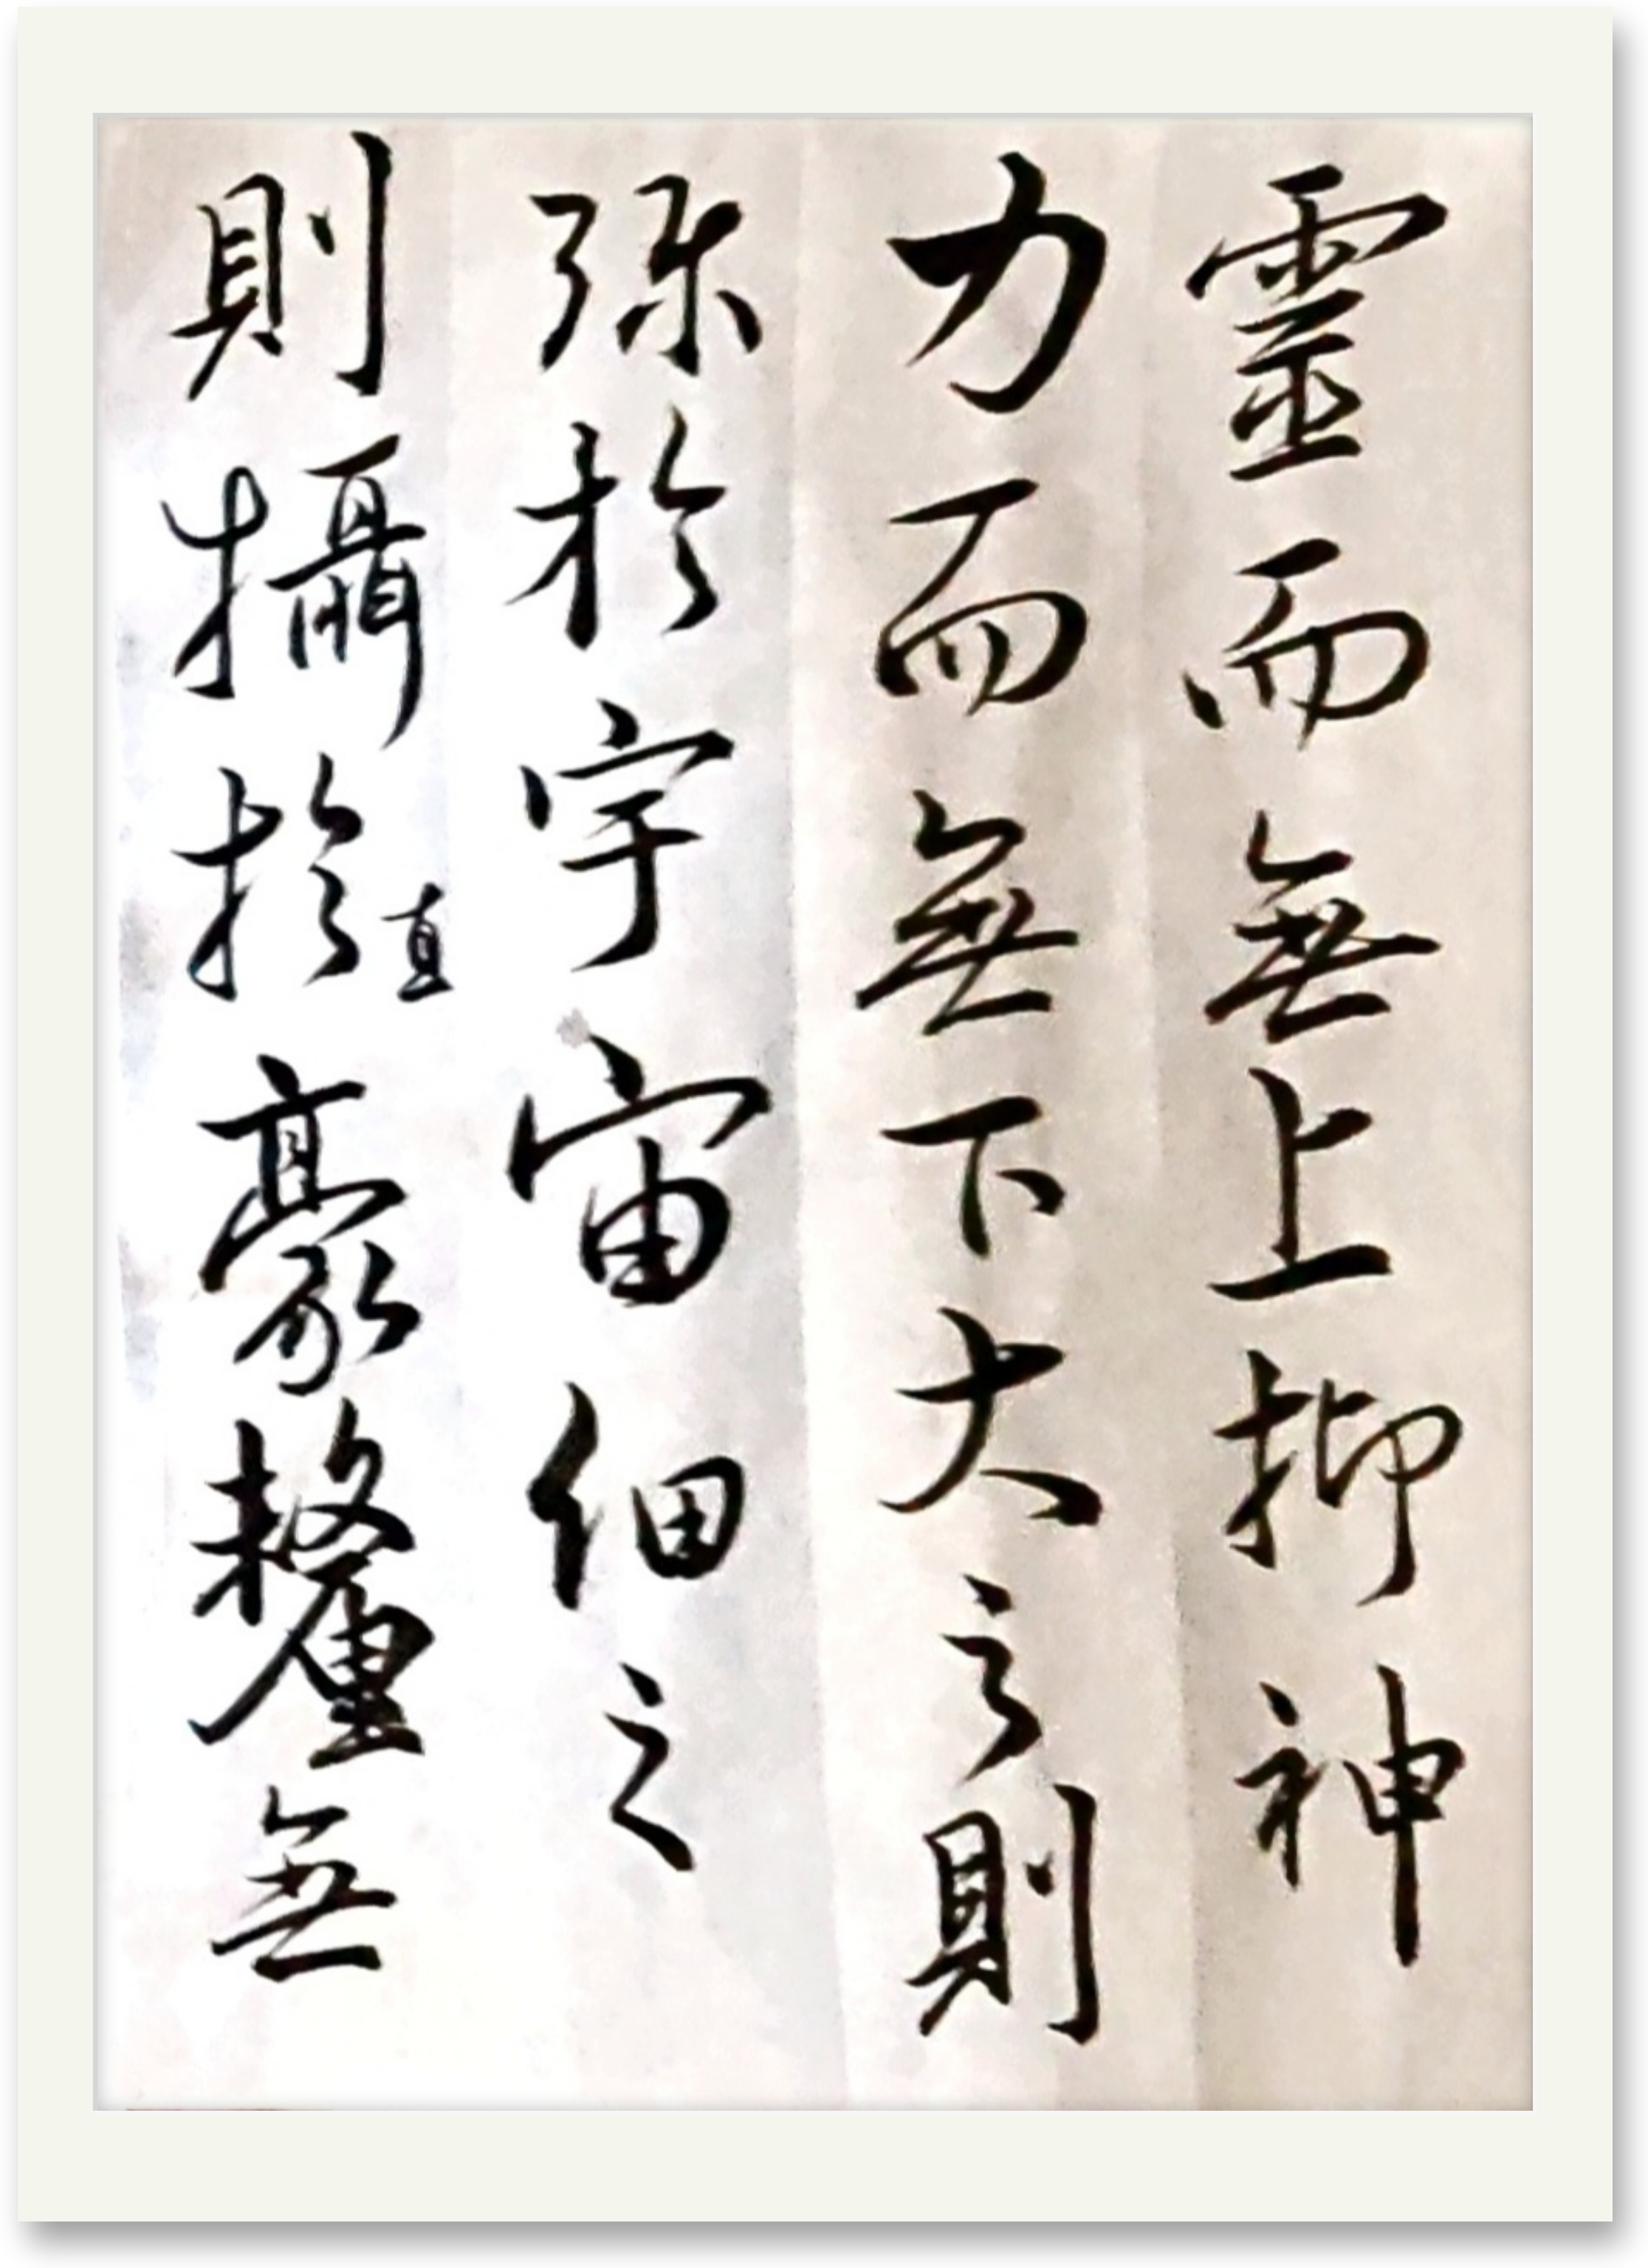 靈而無上抑神
力而無下大之則
弥於宇宙細之
則攝於直豪釐無